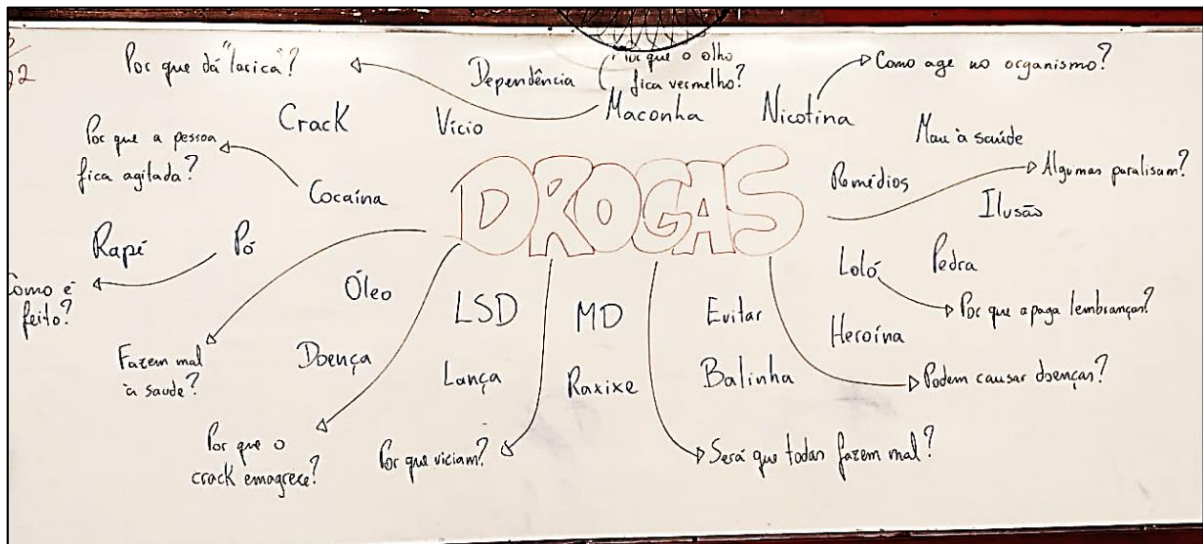 Por que dá "larica"?
Dependência
que o olho
fica vermelho?
Como age no organismo?
Crack
Vício
Maconha
Nicotina
Mau à saúde
Por que a pessoa
fica agitada?
Cocaína
DROGAS
Remédios
Algumas paralisam?
Ilusão
Rapé
Pó
Como é
feito?
Óleo
LSD
MD
Evitar
Loló
Pedra
Por que apaga lembranças?
Heroína
Fazem mal
à saude?
Doença
Lança
Raxixe
Balinha
Podem causar doenças?
Por que o
crack emagrece?
Por que viciam?
Será que todas fazem mal?